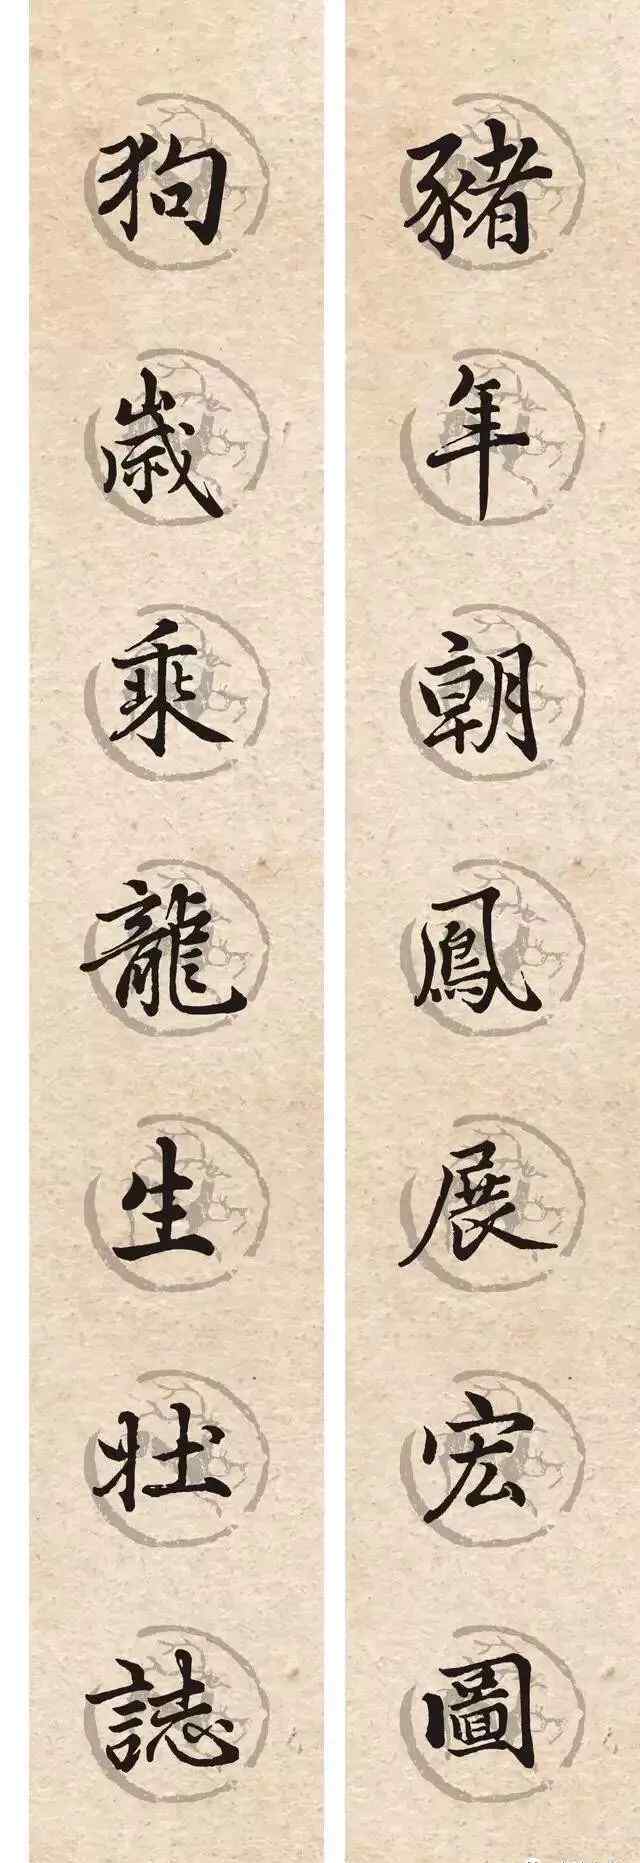 豬年朝鳳展宏圖
狗歲乘龍生壯誌